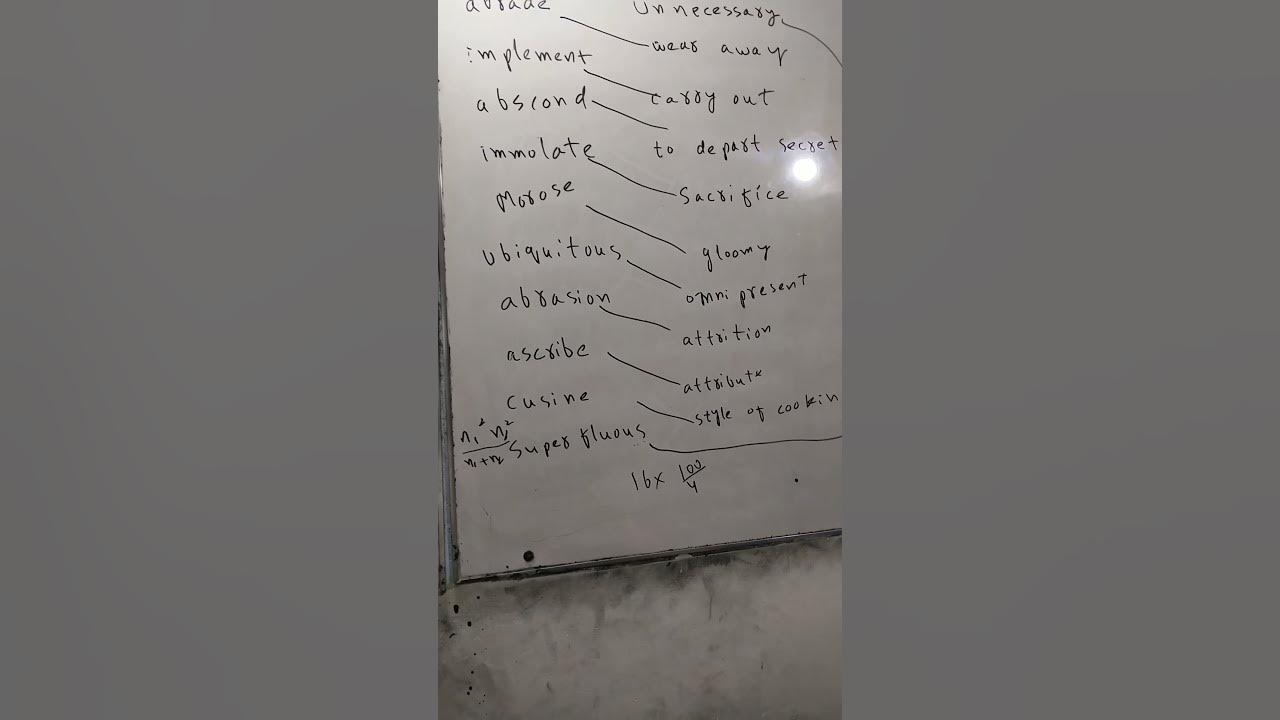 abrade Unnecessary
implement wear away
abscond carry out
immolate to depart secret
Morose Sacrifice
Ubiquitous gloomy
abrasion omni present
ascribe attrition
cusine attribute
Superfluous style of cookin
n₁² n₂²
n₁+n₂
16x 100/4